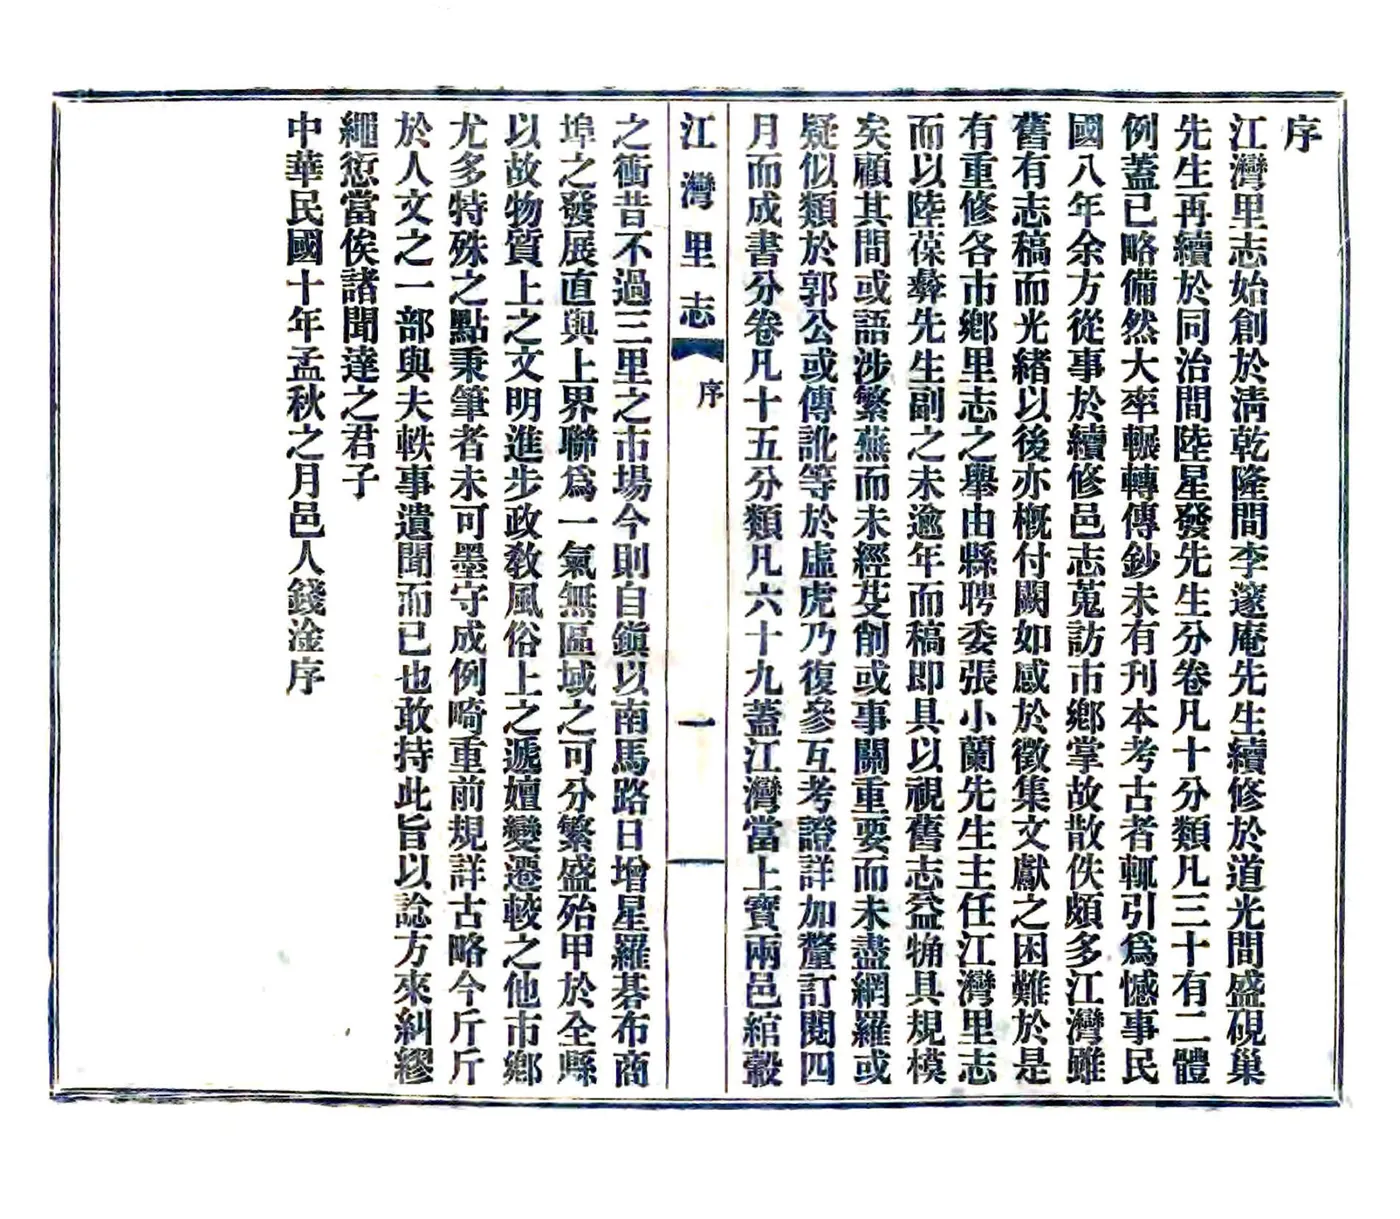 序
江灣里志始創於淸乾隆間李邃庵先生續修於道光間盛硯巢
先生再續於同治間陸星發先生分卷凡十分類凡三十有二體
例蓋已略備然大率輾轉傳鈔未有刊本考古者輒引爲憾事民
國八年余方從事於續修邑志蒐訪市鄕掌故散佚頗多江灣雖
舊有志稿而光緒以後亦槪付闕如感於徵集文獻之困難於是
有重修各市鄕里志之舉由縣聘委張小蘭先生主任江灣里志
而以陸葆彝先生副之未逾年而稿即具以視舊志益觕具規模
矣顧其間或語涉繁蕪而未經芟削或事關重要而未盡網羅或
疑似類於郭公或傳訛等於虛虎乃復參互考證詳加釐訂閱四
月而成書分卷凡十五分類凡六十九蓋江灣當上寶兩邑綰轂
江灣里志
序
一
之衝昔不過三里之市場今則自鎭以南馬路日增星羅棊布商
埠之發展直與上界聯爲一氣無區域之可分繁盛殆甲於全縣
以故物質上之文明進步政敎風俗上之遞嬗變遷較之他市鄕
尤多特殊之點秉筆者未可墨守成例畸重前規詳古略今斤斤
於人文之一部與夫軼事遺聞而已也敢持此旨以諗方來糾繆
繩愆當俟諸聞達之君子
中華民國十年孟秋之月邑人錢淦序